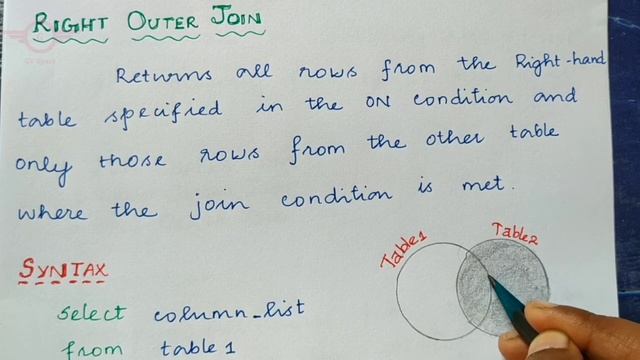 RIGHT OUTER JOIN
Returns all rows from the Right-hand
table specified in the ON condition and
only those rows from the other table
where the join condition is met.
Table1
Table2
SYNTAX
select column_list
from table1